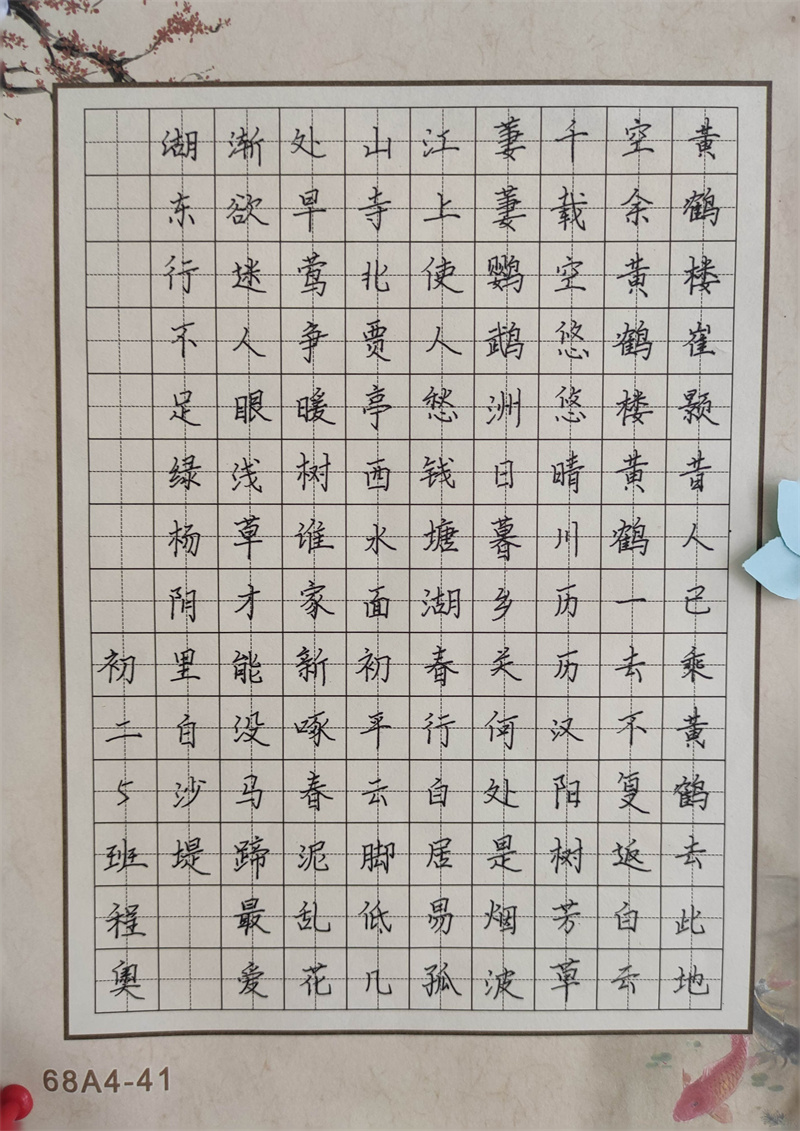 黄鹤楼崔颢昔人已乘黄鹤去此地
空余黄鹤楼黄鹤一去不复返白云
千载空悠悠晴川历历汉阳树芳草
萋萋鹦鹉洲日暮乡关何处是烟波
江上使人愁钱塘湖春行白居易孤
山寺北贾亭西水面初平云脚低几
处早莺争暖树谁家新啄春泥乱花
渐欲迷人眼浅草才能没马蹄最爱
湖东行不足绿杨阴里白沙堤
初二5班程奥
68A4-41